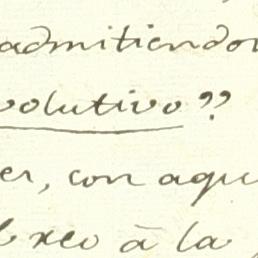 admitiendo
volutivo??
er, con aqu
l reo á la